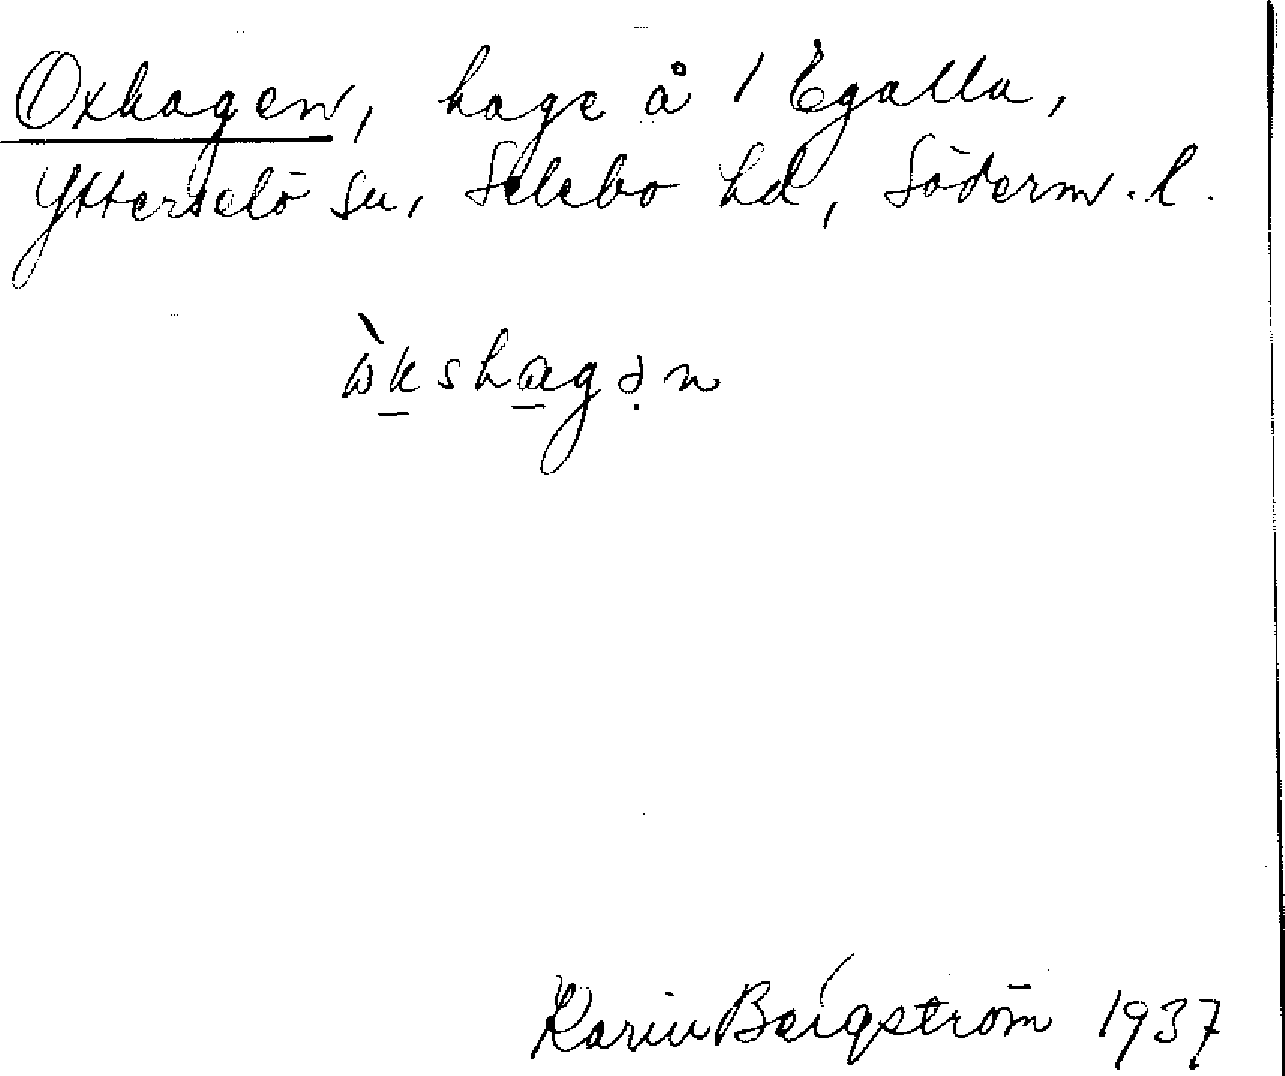 Oxhagen, hage å 1 Egalla,
Ytterselö sn, Selebo hd, Söderm. l.
ɷ̀kshagən
Karin Bergström 1937